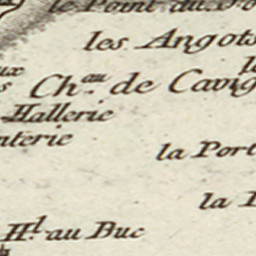 le Point du
les Angots
Ch.au de Cavig
Hallerie
la Port
la
H.l au Duc